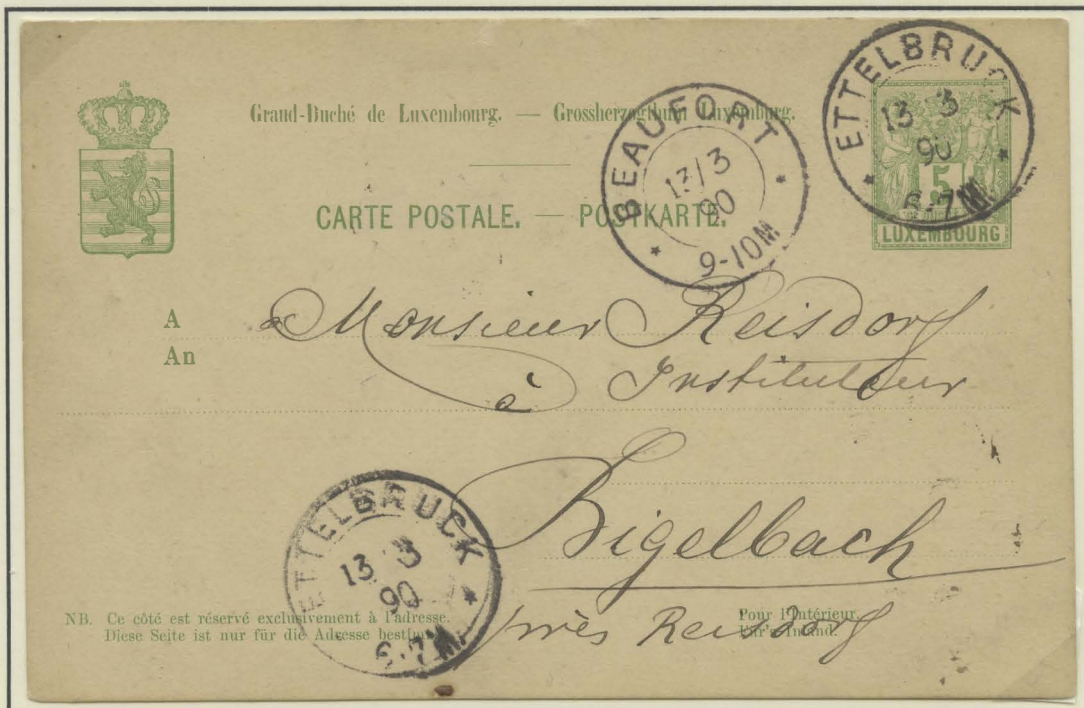 Grand-Duché de Luxembourg. — Grossherzogthum Luxemburg.
CARTE POSTALE. — POSTKARTE.
ETTELBRUCK
13 3
90
6-7M
BEAUFORT
13/3
90
9-10M
5
LUXEMBOURG
A
An
Monsieur Reisdorf
à Instituteur
Bigelbach
près Reisdorf
ETTELBRUCK
13 3
90
6-7M
NB. Ce côté est réservé exclusivement à l'adresse.
Diese Seite ist nur für die Adresse bestimmt.
Pour l'Intérieur.
Für's Inland.